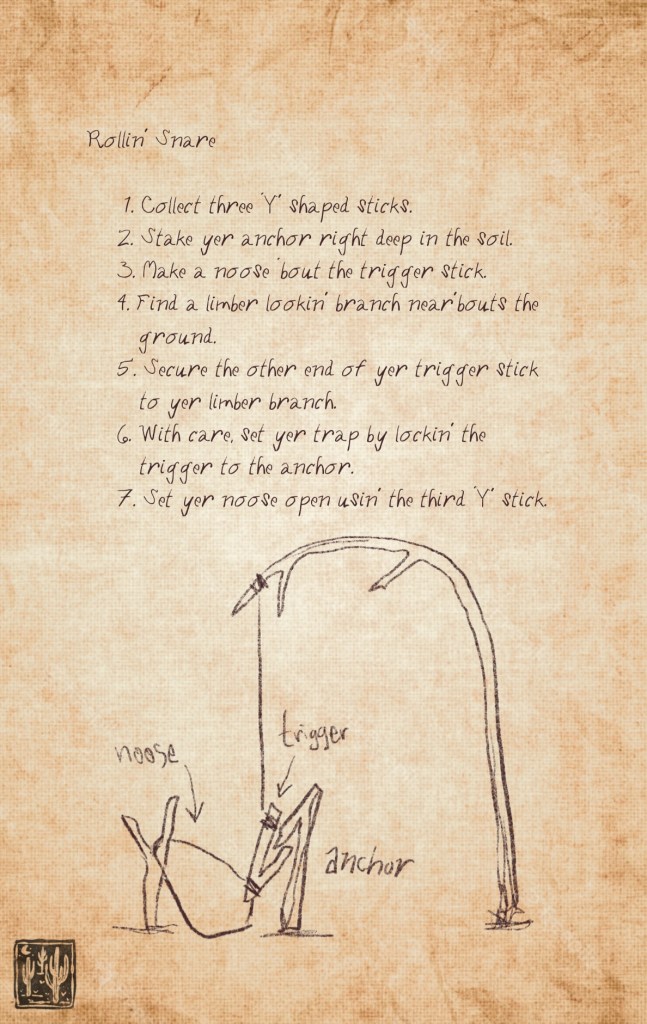 Rollin' Snare
1. Collect three 'Y' shaped sticks.
2. Stake yer anchor right deep in the soil.
3. Make a noose 'bout the trigger stick.
4. Find a limber lookin' branch near'bouts the
ground.
5. Secure the other end of yer trigger stick
to yer limber branch.
6. With care, set yer trap by lockin' the
trigger to the anchor.
7. Set yer noose open usin' the third 'Y' stick.
trigger
noose
anchor